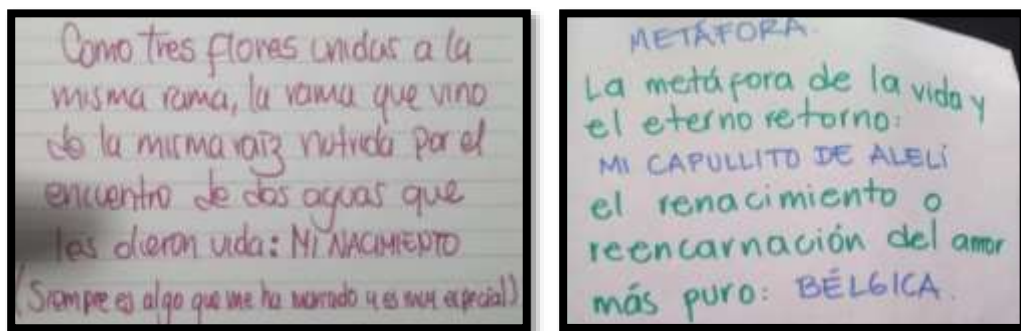 Como tres flores unidas a la
misma rama, la rama que vino
de la misma raiz nutrida por el
encuentro de dos aguas que
les dieron vida: MI NACIMIENTO
(Siempre es algo que me ha marcado y es muy especial)
METÁFORA.
La metáfora de la vida y
el eterno retorno:
MI CAPULLITO DE ALELÍ
el renacimiento o
reencarnación del amor
más puro: BÉLGICA.